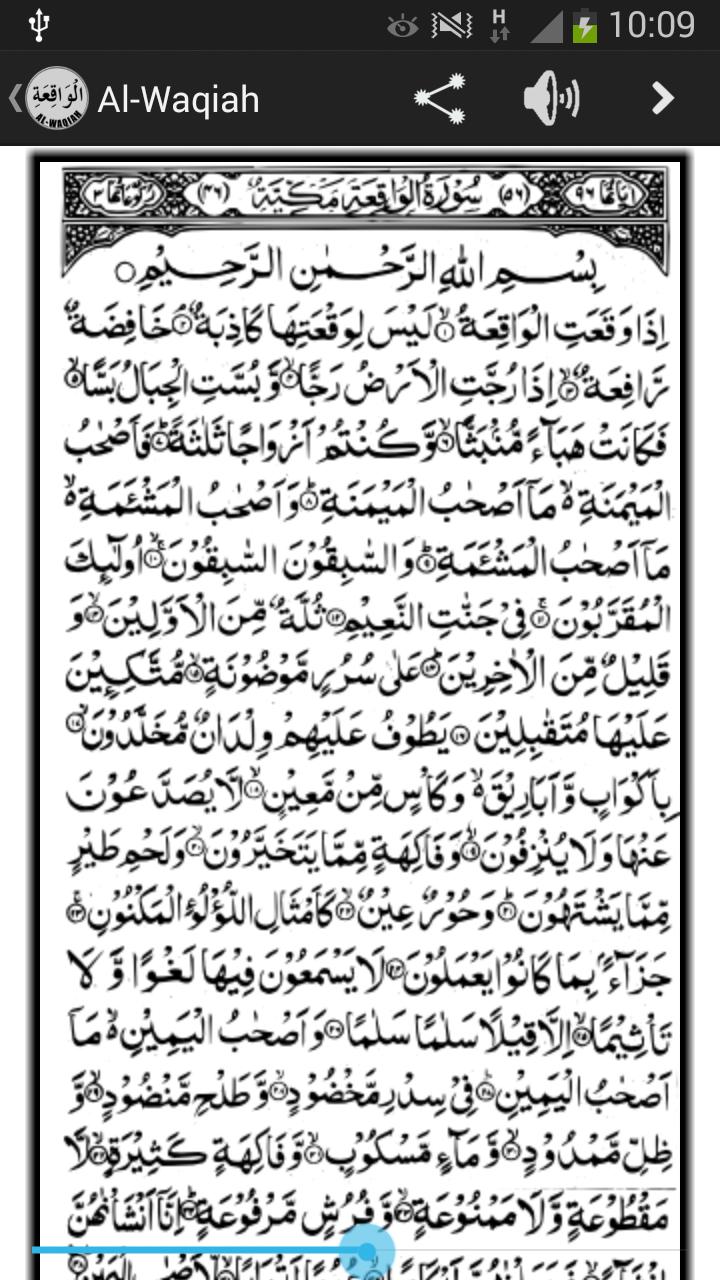 H 10:09
الواقعة
AL-WAQIAH
Al-Waqiah
اٰیاتها ٩٦ (٥٦) سُوْرَةُ الْوَاقِعَةِ مَكِّيَّةٌ (٤٦) رکوعاتها ٣
بِسْمِ اللهِ الرَّحْمٰنِ الرَّحِيْمِ
اِذَا وَقَعَتِ الْوَاقِعَةُ ١ لَيْسَ لِوَقْعَتِهَا كَاذِبَةٌ ٢ خَافِضَةٌ
رَّافِعَةٌ ٣ اِذَا رُجَّتِ الْاَرْضُ رَجًّا ٤ وَّ بُسَّتِ الْجِبَالُ بَسًّا ٥
فَكَانَتْ هَبَآءً مُّنْۢبَثًّا ٦ وَّ كُنْتُمْ اَزْوَاجًا ثَلٰثَةً ٧ فَاَصْحٰبُ
الْمَيْمَنَةِ مَاۤ اَصْحٰبُ الْمَيْمَنَةِ ٨ وَ اَصْحٰبُ الْمَشْـَٔمَةِ
مَاۤ اَصْحٰبُ الْمَشْـَٔمَةِ ٩ وَ السّٰبِقُوْنَ السّٰبِقُوْنَ ١٠ اُولٰٓئِكَ
الْمُقَرَّبُوْنَ ١١ فِيْ جَنّٰتِ النَّعِيْمِ ١٢ ثُلَّةٌ مِّنَ الْاَوَّلِيْنَ ١٣ وَ
قَلِيْلٌ مِّنَ الْاٰخِرِيْنَ ١٤ عَلٰى سُرُرٍ مَّوْضُوْنَةٍ ١٥ مُّتَّكِـِٕيْنَ
عَلَيْهَا مُتَقٰبِلِيْنَ ١٦ يَطُوْفُ عَلَيْهِمْ وِلْدَانٌ مُّخَلَّدُوْنَ ١٧
بِاَكْوَابٍ وَّ اَبَارِيْقَ وَ كَاْسٍ مِّنْ مَّعِيْنٍ ١٨ لَّا يُصَدَّعُوْنَ
عَنْهَا وَ لَا يُنْزِفُوْنَ ١٩ وَ فَاكِهَةٍ مِّمَّا يَتَخَيَّرُوْنَ ٢٠ وَ لَحْمِ طَيْرٍ
مِّمَّا يَشْتَهُوْنَ ٢١ وَ حُوْرٌ عِيْنٌ ٢٢ كَاَمْثَالِ اللُّؤْلُؤِ الْمَكْنُوْنِ ٢٣
جَزَآءًۢ بِمَا كَانُوْا يَعْمَلُوْنَ ٢٤ لَا يَسْمَعُوْنَ فِيْهَا لَغْوًا وَّ لَا
تَاْثِيْمًا ٢٥ اِلَّا قِيْلًا سَلٰمًا سَلٰمًا ٢٦ وَ اَصْحٰبُ الْيَمِيْنِ مَاۤ
اَصْحٰبُ الْيَمِيْنِ ٢٧ فِيْ سِدْرٍ مَّخْضُوْدٍ ٢٨ وَّ طَلْحٍ مَّنْضُوْدٍ ٢٩ وَّ
ظِلٍّ مَّمْدُوْدٍ ٣٠ وَّ مَآءٍ مَّسْكُوْبٍ ٣١ وَّ فَاكِهَةٍ كَثِيْرَةٍ ٣٢ لَّا
مَقْطُوْعَةٍ وَّ لَا مَمْنُوْعَةٍ ٣٣ وَّ فُرُشٍ مَّرْفُوْعَةٍ ٣٤ اِنَّاۤ اَنْشَاْنٰهُنَّ